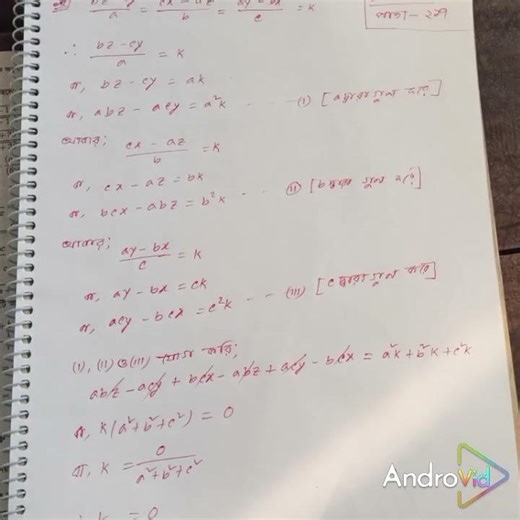 bz-cy/a = cx-az/b = ay-bx/c = k
পাতা - ২২৭
∴ bz-cy/a = k
বা, bz-cy = ak
বা, abz - acy = a²k - - - (I) [a দ্বারা গুণ করে]
আবার; cx-az/b = k
বা, cx-az = bk
বা, bcx-abz = b²k - - (II) [b দ্বারা গুণ করে]
আবার; ay-bx/c = k
বা, ay-bx = ck
বা, acy-bcx = c²k - - (III) [c দ্বারা গুণ করে]
(I), (II) ও (III) যোগ করি;
abz - acy + bcx - abz + acy - bcx = a²k + b²k + c²k
বা, k(a²+b²+c²) = 0
বা, k = 0/a²+b²+c²
∴ k = 0
AndroVid